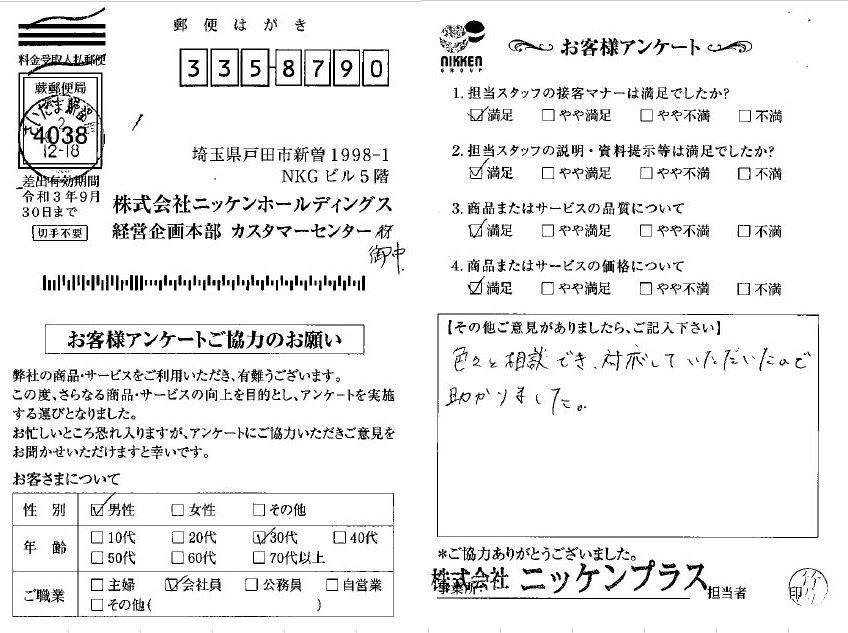 郵便はがき
料金受取人払郵便
蕨郵便局
4038
12-18
差出有効期間
令和3年9月
30日まで
切手不要
3358790
埼玉県戸田市新曽1998-1
NKGビル5階
株式会社ニッケンホールディングス
経営企画本部 カスタマーセンター 行
御中
お客様アンケートご協力のお願い
弊社の商品・サービスをご利用いただき、有難うございます。
この度、さらなる商品・サービスの向上を目的とし、アンケートを実施
する運びとなりました。
お忙しいところ恐れ入りますが、アンケートにご協力いただきご意見を
お聞かせいただけますと幸いです。
お客さまについて
性別 ☑男性 □女性 □その他
年齢 □10代 □20代 ☑30代 □40代
□50代 □60代 □70代以上
ご職業 □主婦 ☑会社員 □公務員 □自営業
□その他( )
NIKKEN
GROUP
お客様アンケート
1. 担当スタッフの接客マナーは満足でしたか?
☑満足 □やや満足 □やや不満 □不満
2. 担当スタッフの説明・資料提示等は満足でしたか?
☑満足 □やや満足 □やや不満 □不満
3. 商品またはサービスの品質について
☑満足 □やや満足 □やや不満 □不満
4. 商品またはサービスの価格について
☑満足 □やや満足 □やや不満 □不満
【その他ご意見がありましたら、ご記入下さい】
色々と相談でき、対応していただいたので
助かりました。
*ご協力ありがとうございました。
株式会社 ニッケンプラス
事業所:
担当者 印